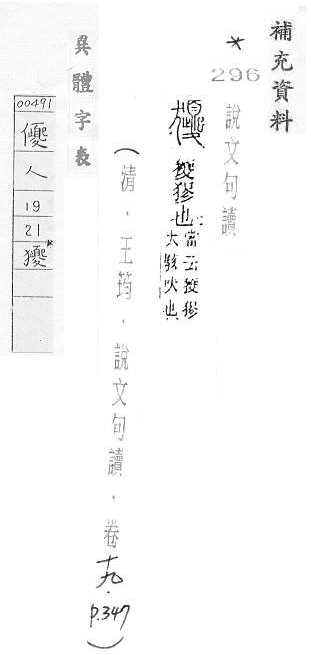 補充資料
*
296
說文句讀
獿㺒也
當云獿㺒
犬駭吠也
(清．王筠．說文句讀．卷十九．P.347)
異體字表
00491
人
19
21
獿*